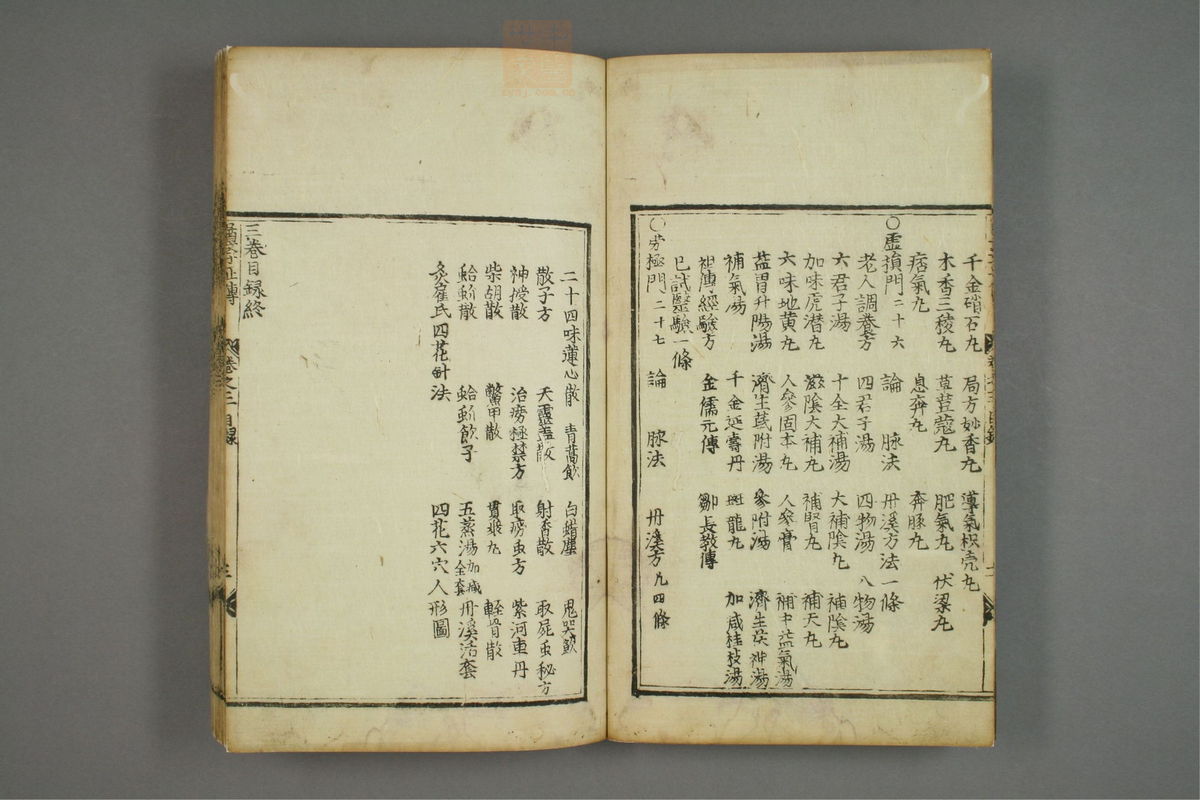 千金硝石丸 局方妙香丸 導氣枳壳丸
木香三稜丸 荳蔻丸 肥氣丸 伏梁丸
痞氣丸 息奔丸 奔豚丸
○虛損門二十六 論 脉法 丹溪方法一條
老人調養方 四君子湯 四物湯 八物湯
六君子湯 十全大補湯 大補陰丸 補陰丸
加味虎潜丸 滋陰大補丸 補腎丸 補天丸
六味地黄丸 人參固本丸 人參膏 補中益氣湯
益胃升陽湯 濟生芪附湯 參附湯 濟生茯神湯
補氣湯 千金延壽丹 斑龍丸 加咸桂枝湯
祖傳經驗方 金儒元傳 鄒長教傳
已試醫驗一條
○劳極門二十七 論 脉法 丹溪方九四條
二十四味蓮心散 青蒿飲 白蠟塵 鬼哭飲
散子方 天靈蓋散 射香散 取屍虫秘方
神授散 治癆極禁方 取癆虫方 紫河車丹
柴胡散 鱉甲散 貫衆丸 輕骨散
蛤蚧散 蛤蚧飲子 五蒸湯加咸全套 丹溪活套
灸崔氏四花䖝法 四花六穴人形圖
三巻目録終
卷之三目録 三